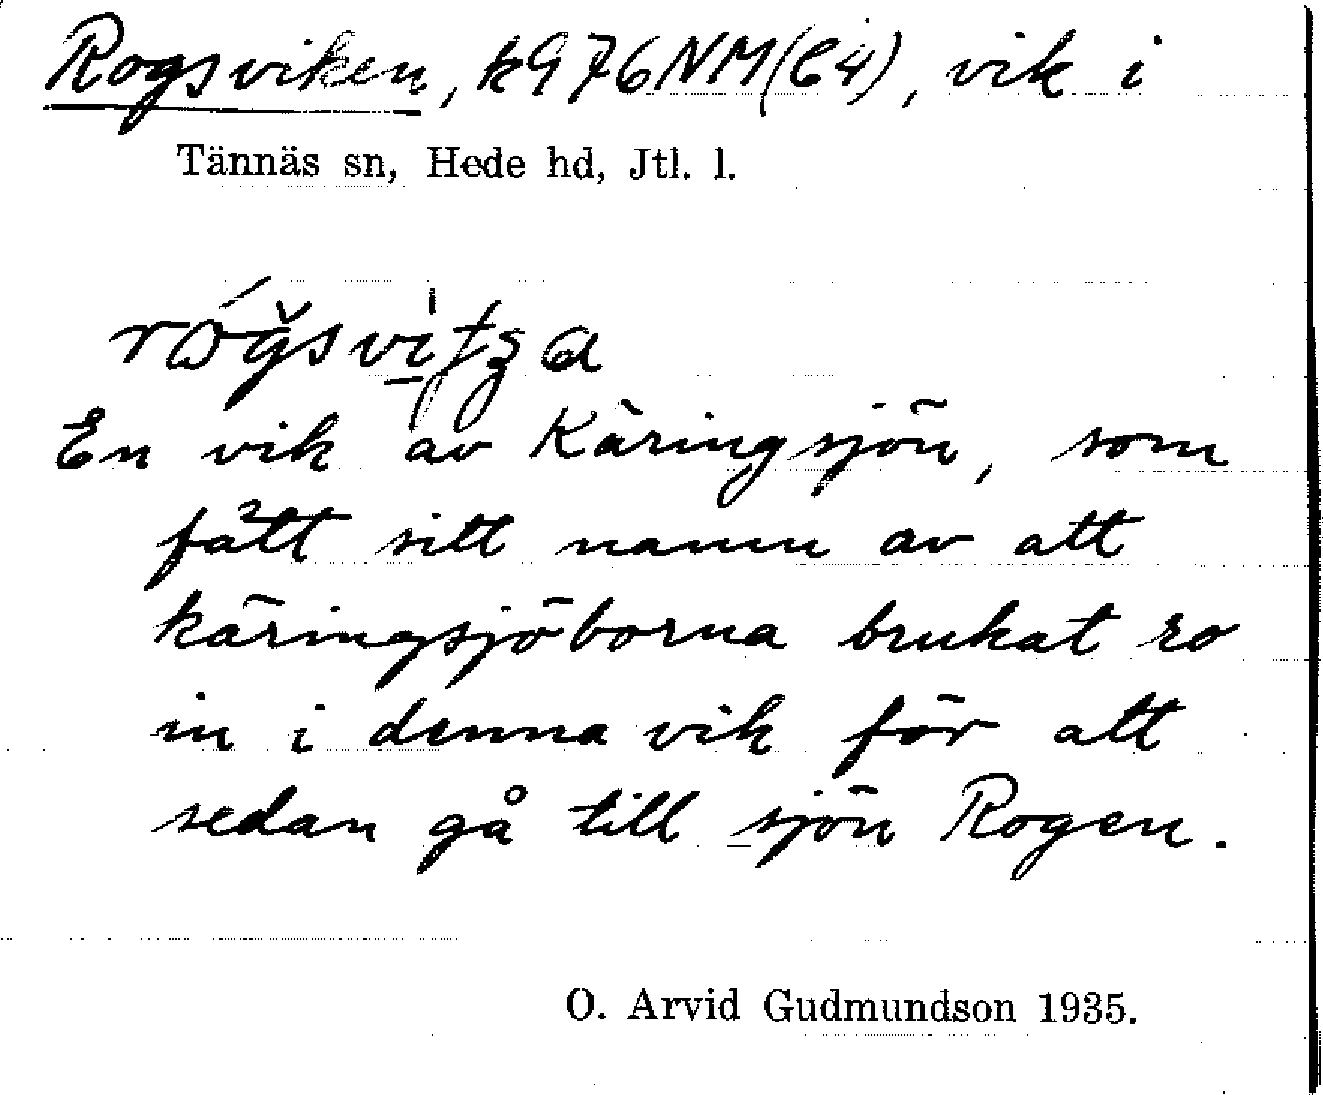 Rogsviken, k976NM(C4), vik i
Tännäs sn, Hede hd, Jtl. l.
En vik av Käringsjön, som
fått sitt namn av att
käringsjöborna brukat ro
in i denna vik för att
sedan gå till sjön Rogen.
O. Arvid Gudmundson 1935.